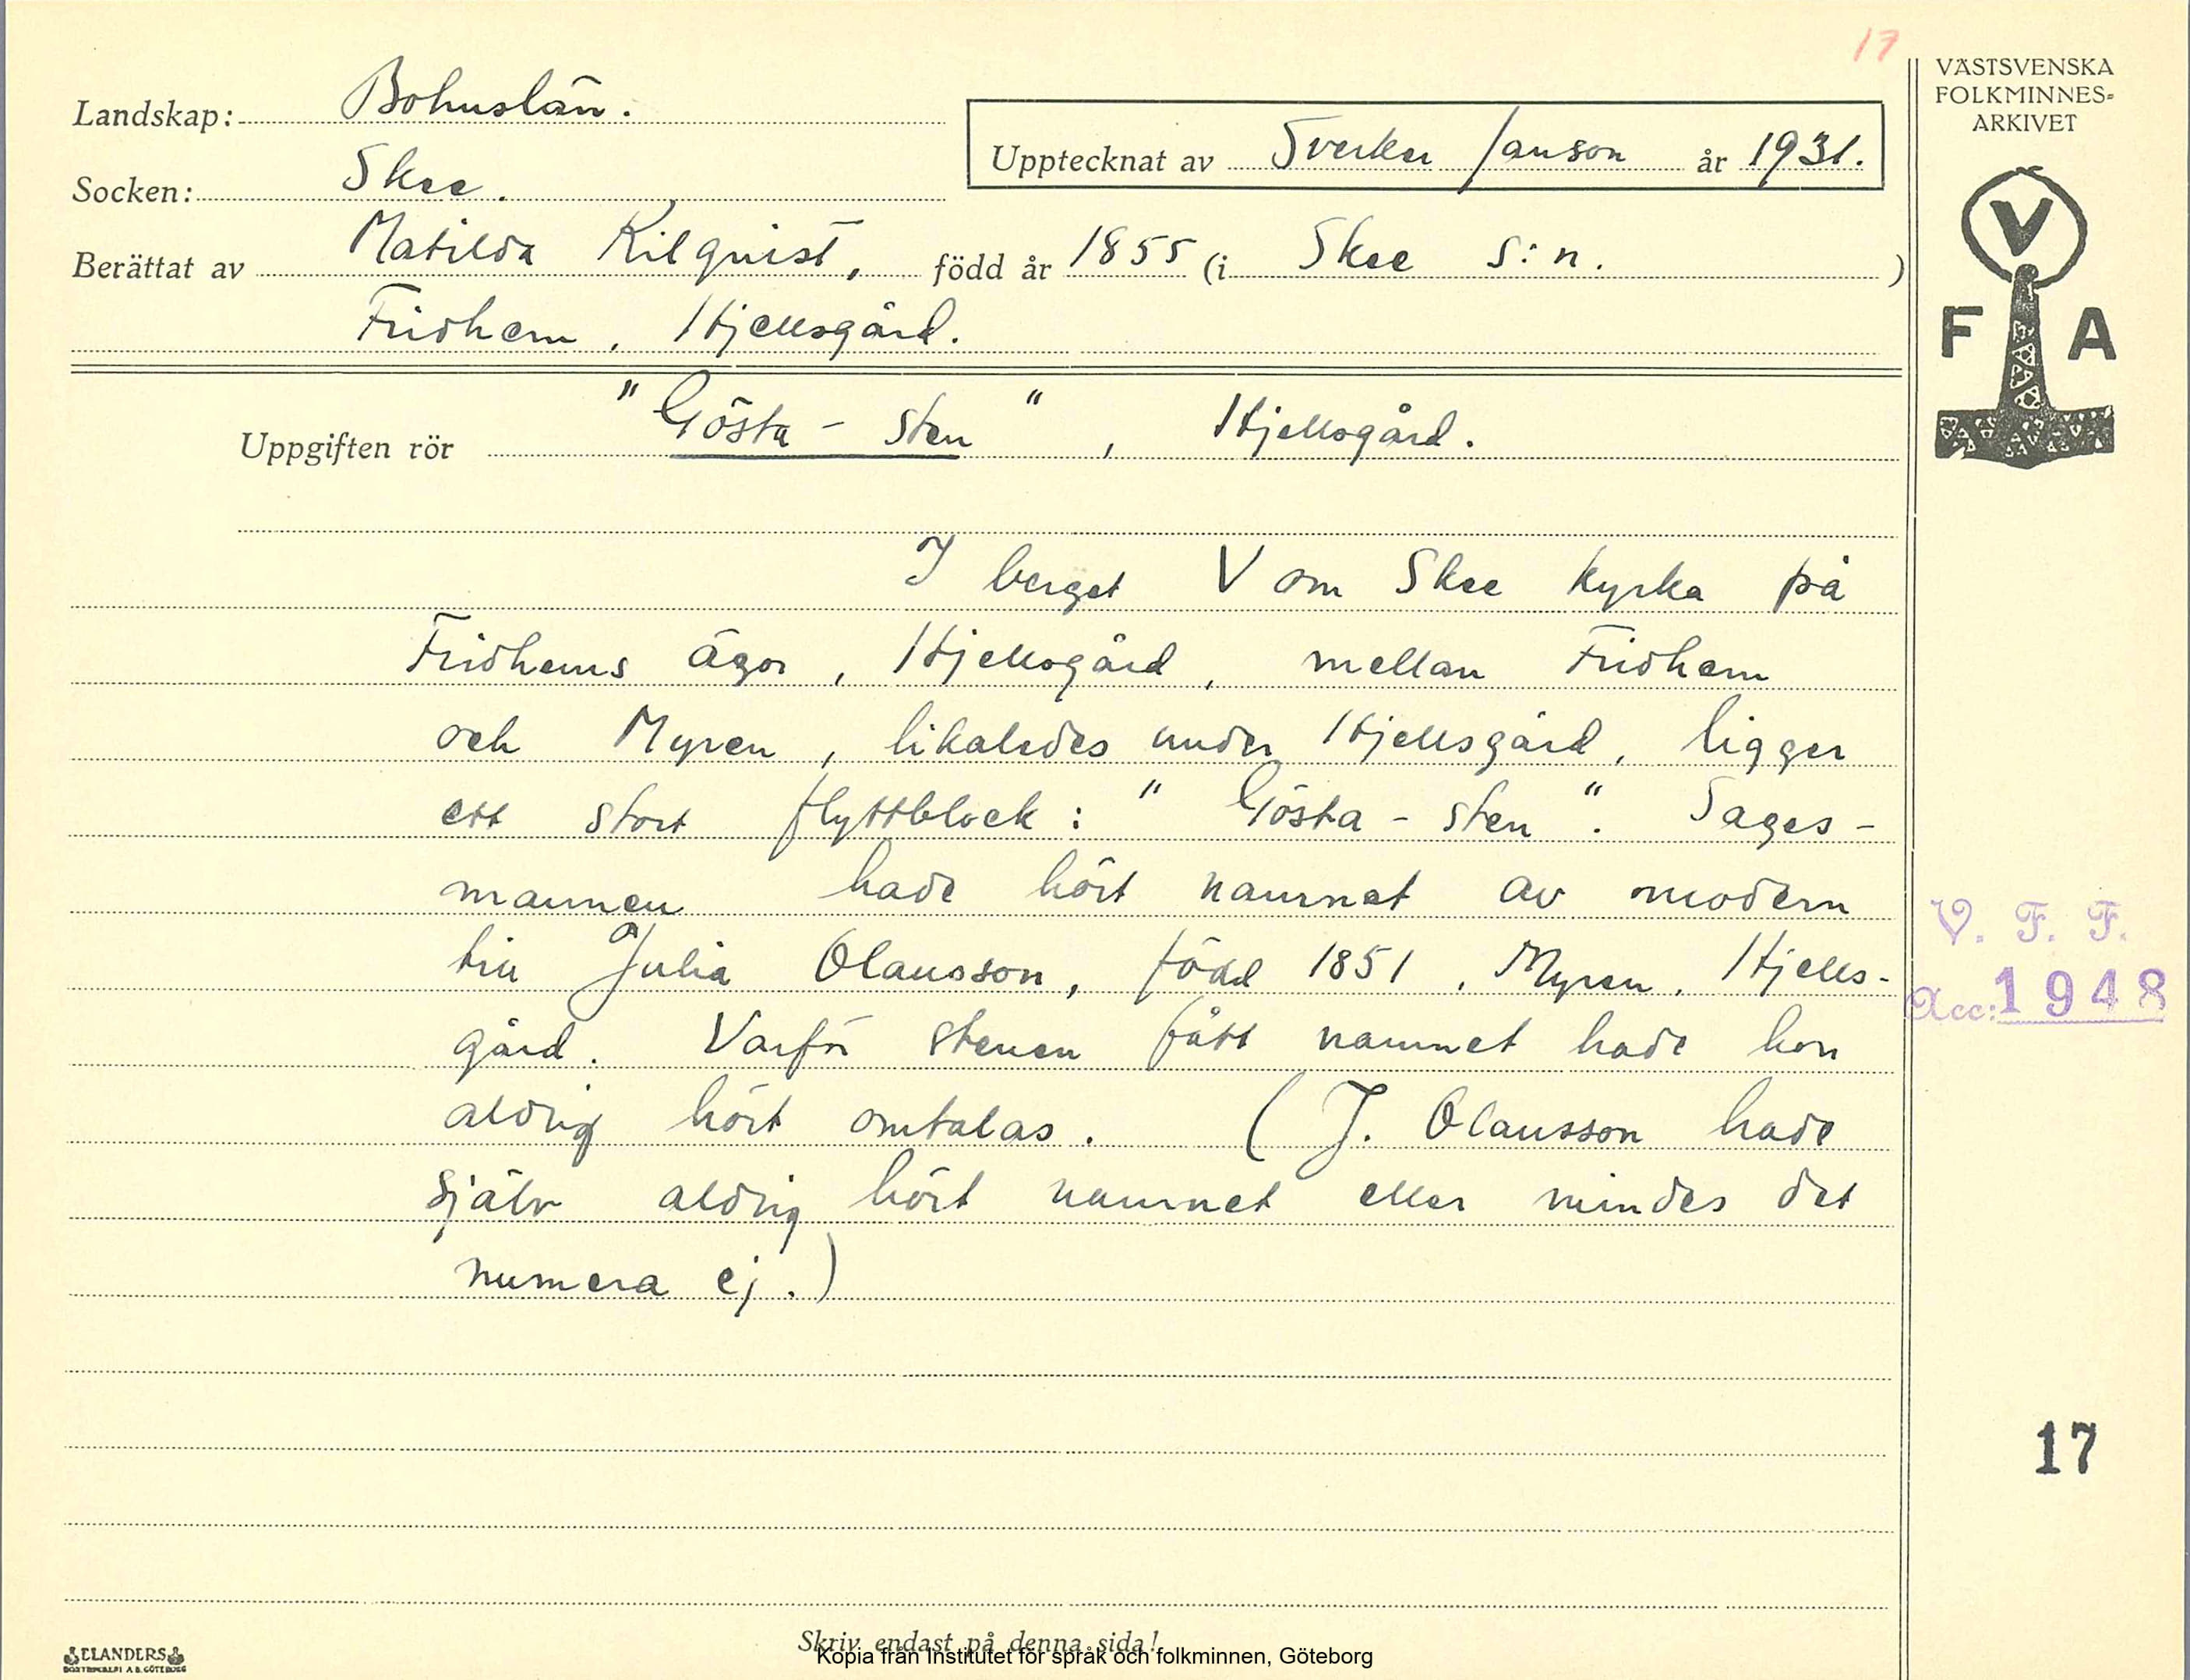 17
VÄSTSVENSKA
FOLKMINNES=
ARKIVET
Landskap: Bohuslän.
Upptecknat av Sverker Janson år 1931.
Socken: Skee.
Berättat av Matilda Kilquist, född år 1855 (i Skee s:n. )
Fridhem, Hjellsgård.
V
F A
Uppgiften rör "Gösta-sten", Hjellsgård.
I berget V om Skee kyrka på
Fridhems ägor, Hjellsgård, mellan Fridhem
och Myren, likaledes under Hjellsgård, ligger
ett stort flyttblock: "Gösta-sten". Sages-
mannen hade hört namnet av modern
till Julia Olausson, född 1851, Myren, Hjells-
gård. Varför stenen fått namnet hade hon
aldrig hört omtalas. (J. Olausson hade
själv aldrig hört namnet eller mindes det
numera ej.)
V. F. F.
Acc: 1948
17
Skriv endast på denna sida!
Kopia från Institutet för språk och folkminnen, Göteborg
ELANDERS
BOKTRYCKERI A.B. GÖTEBORG